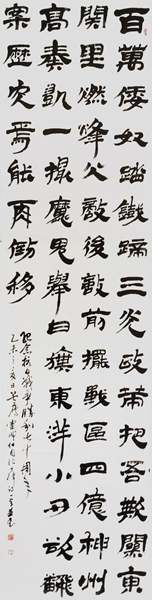 百萬倭奴踏鐵蹄三光政策把吾欺關東
關里燃烽火敵後敵前擺戰區四億神州
高奏凱一撮魔鬼舉白旗東洋小丑欲飜
案歷史焉能再倒移
紀念抗日戰爭勝利七十周年
乙未